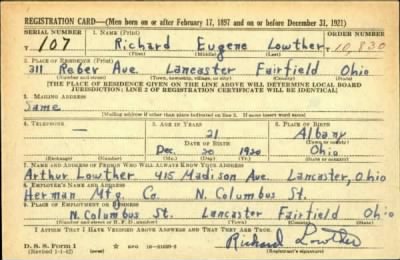 REGISTRATION CARD—(Men born on or after February 17, 1897 and on or before December 31, 1921)
SERIAL NUMBER 1. NAME (Print) ORDER NUMBER
T 107 Richard Eugene Lowther T 10,830
(First) (Middle) (Last)
2. PLACE OF RESIDENCE (Print)
311 Reber Ave. Lancaster Fairfield Ohio
(Number and street) (Town, township, village, or city) (County) (State)
[THE PLACE OF RESIDENCE GIVEN ON THE LINE ABOVE WILL DETERMINE LOCAL BOARD
JURISDICTION; LINE 2 OF REGISTRATION CERTIFICATE WILL BE IDENTICAL]
3. MAILING ADDRESS
Same
[Mailing address if other than place indicated on line 2. If same insert word same]
4. TELEPHONE 5. AGE IN YEARS 6. PLACE OF BIRTH
— 21 Albany
DATE OF BIRTH (Town or county)
Dec. 20 1920 Ohio
(Exchange) (Number) (Mo.) (Day) (Yr.) (State or country)
7. NAME AND ADDRESS OF PERSON WHO WILL ALWAYS KNOW YOUR ADDRESS
Arthur Lowther 415 Madison Ave. Lancaster, Ohio
8. EMPLOYER'S NAME AND ADDRESS
Herman Mfg. Co. N. Columbus St.
9. PLACE OF EMPLOYMENT OR BUSINESS
N. Columbus St. Lancaster Fairfield Ohio
(Number and street or R. F. D. number) (Town) (County) (State)
I AFFIRM THAT I HAVE VERIFIED ABOVE ANSWERS AND THAT THEY ARE TRUE.
D. S. S. Form 1
(Revised 1-1-42) (over)
Richard Lowther
(Registrant's signature)